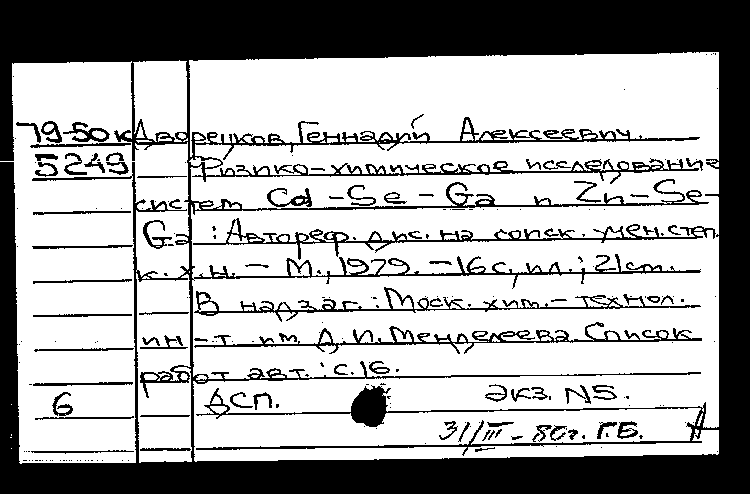 79-50к Дворецков, Геннадий Алексеевич.
5249 Физико-химическое исследование
систем Cd-Se-Ga и Zn-Se-
Ga : Автореф. дис. на соиск. учен. степ.
к. х. н. - М., 1979. - 16 с., ил.; 21 см.
В надзаг.: Моск. хим.-технол.
ин-т им. Д. И. Менделеева. Список
работ авт.: с. 16.
6 ДСП. Экз. N5.
31/III-80г. Г.Б.